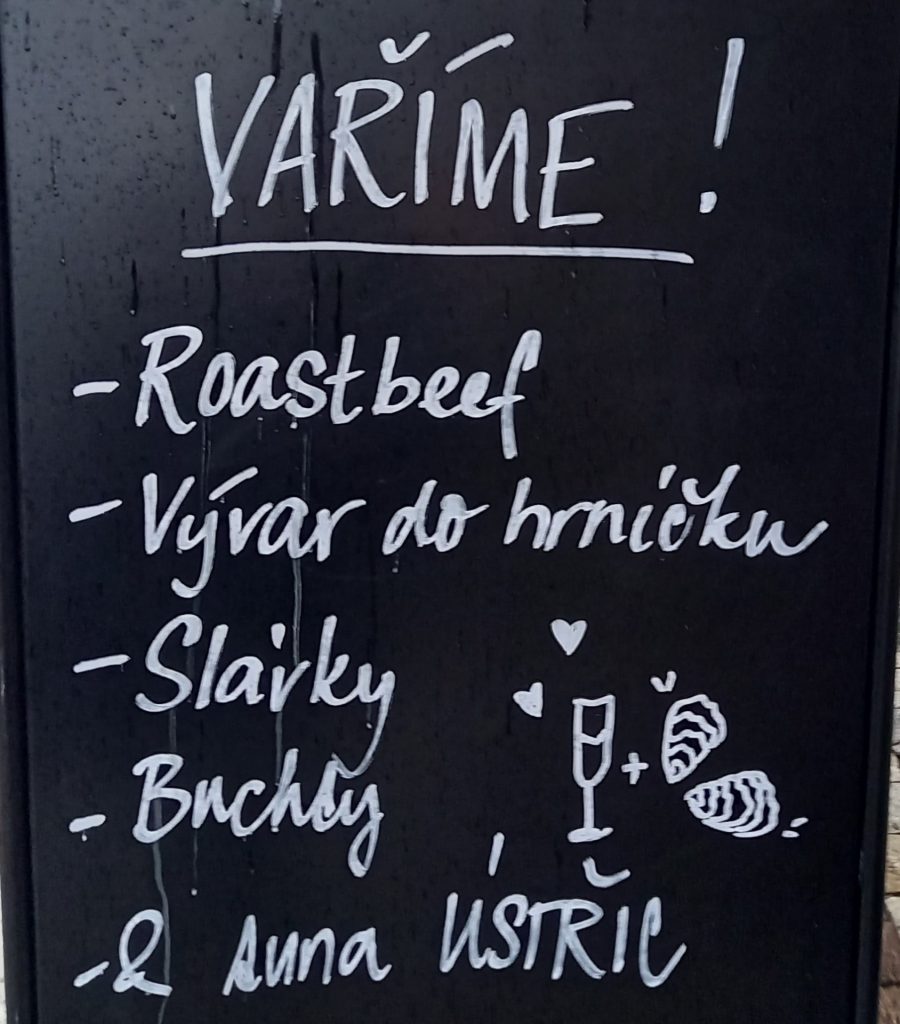 VAŘÍME!
- Roastbeef
- Vývar do hrníčku
- Slávky
- Buchty
- & suna ÚSTŘIC